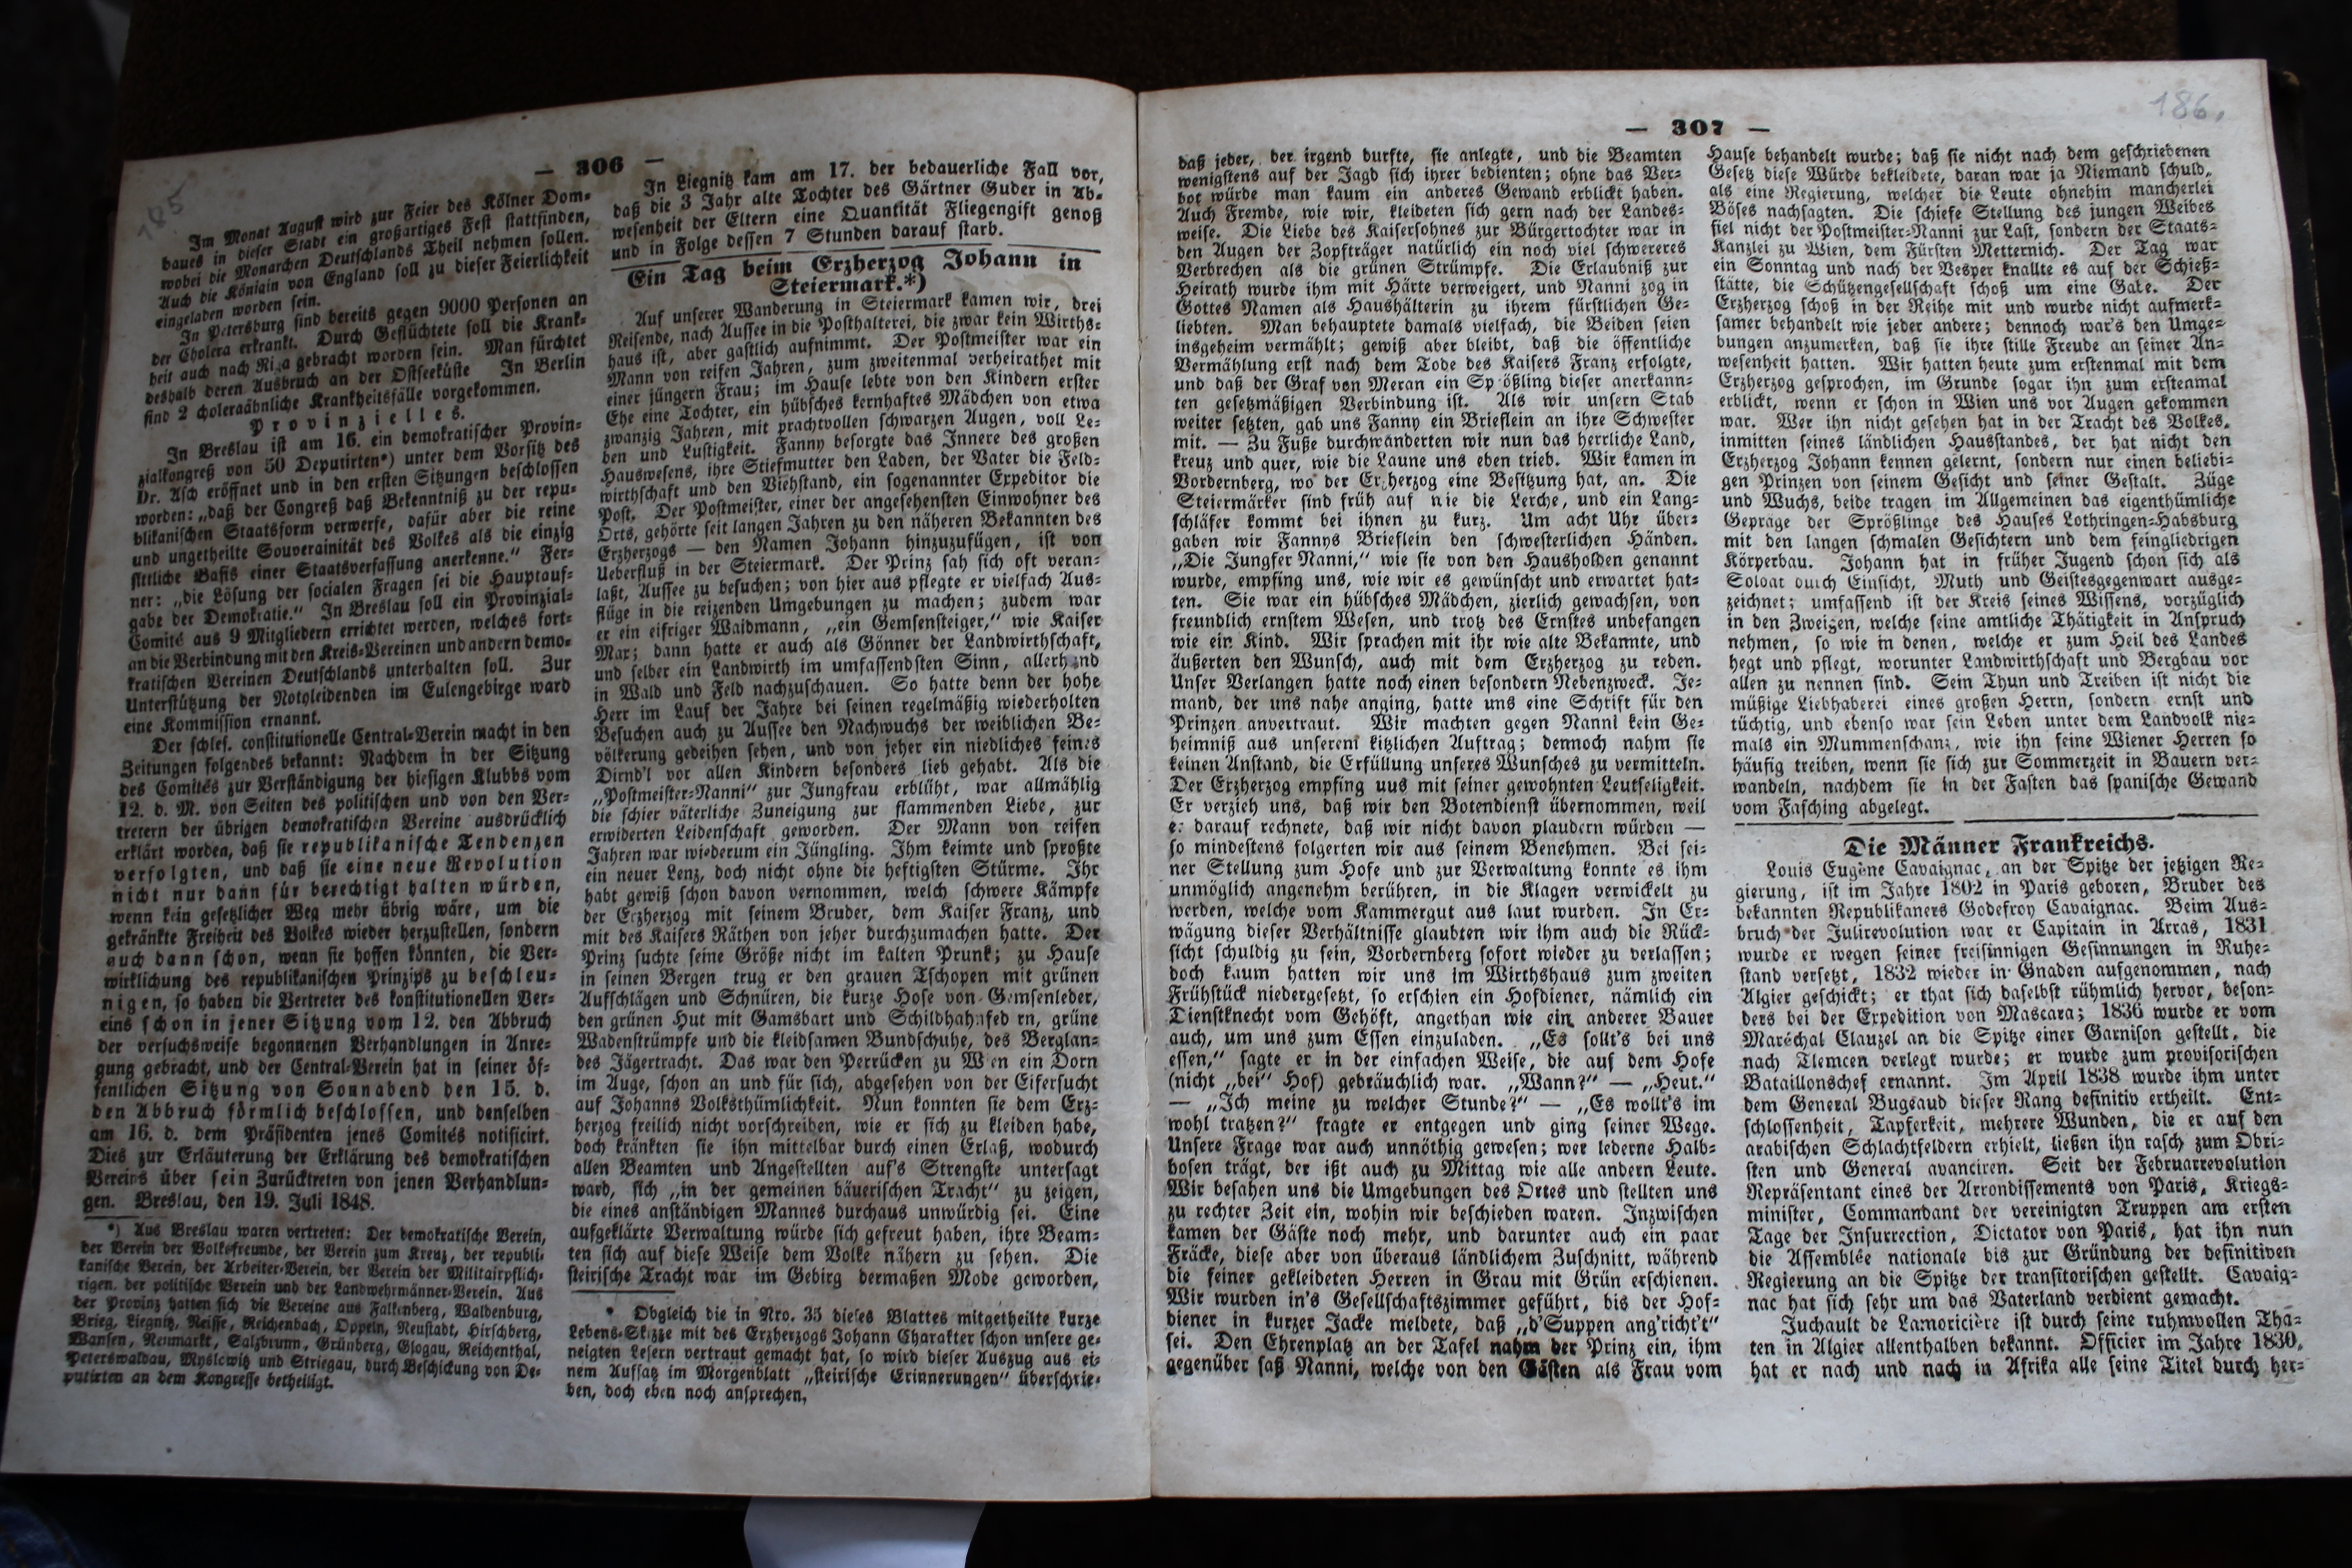 185
— 306 —
Im Monat August wird zur Feier des Kölner Dom-
baues in dieser Stadt ein großartiges Fest stattfinden,
wobei die Monarchen Deutschlands Theil nehmen sollen.
Auch die Königin von England soll zu dieser Feierlichkeit
eingeladen worden sein.
In Petersburg sind bereits gegen 9000 Personen an
der Cholera erkrankt. Durch Geflüchtete soll die Krank-
heit auch nach Riga gebracht worden sein. Man fürchtet
deshalb deren Ausbruch an der Ostseeküste In Berlin
sind 2 choleraähnliche Krankheitsfälle vorgekommen.
Provinzielles.
In Breslau ist am 16. ein demokratischer Provin-
zialkongreß von 50 Deputirten*) unter dem Vorsitz des
Dr. Asch eröffnet und in den ersten Sitzungen beschlossen
worden: „daß der Congreß daß Bekenntniß zu der repu-
blikanischen Staatsform verwerfe, dafür aber die reine
und ungetheilte Souverainität des Volkes als die einzig
sittliche Basis einer Staatsverfassung anerkenne.“ Fer-
ner: „die Lösung der socialen Fragen sei die Hauptauf-
gabe der Demokratie.“ In Breslau soll ein Provinzial-
Comité aus 9 Mitgliedern errichtet werden, welches fort-
an die Verbindung mit den Kreis-Vereinen und andern demo-
kratischen Vereinen Deutschlands unterhalten soll. Zur
Unterstützung der Nothleidenden im Eulengebirge ward
eine Kommission ernannt.
Der schles. constitutionelle Central-Verein macht in den
Zeitungen folgendes bekannt: Nachdem in der Sitzung
des Comités zur Verständigung der hiesigen Klubbs vom
12. d. M. von Seiten des politischen und von den Ver-
tretern der übrigen demokratischen Vereine ausdrücklich
erklärt worden, daß sie republikanische Tendenzen
verfolgten, und daß sie eine neue Revolution
nicht nur dann für berechtigt halten würden,
wenn kein gesetzlicher Weg mehr übrig wäre, um die
gekränkte Freiheit des Volkes wieder herzustellen, sondern
auch dann schon, wenn sie hoffen könnten, die Ver-
wirklichung des republikanischen Prinzips zu beschleu-
nigen, so haben die Vertreter des konstitutionellen Ver-
eins schon in jener Sitzung vom 12. den Abbruch
der versuchsweise begonnenen Verhandlungen in Anre-
gung gebracht, und der Central-Verein hat in seiner öf-
fentlichen Sitzung von Sonnabend den 15. d.
den Abbruch förmlich beschlossen, und denselben
am 16. d. dem Präsidenten jenes Comités notificirt.
Dies zur Erläuterung der Erklärung des demokratischen
Vereins über sein Zurücktreten von jenen Verhandlun-
gen. Breslau, den 19. Juli 1848.
*) Aus Breslau waren vertreten: Der demokratische Verein,
der Verein der Volksfreunde, der Verein zum Kreuz, der republi-
kanische Verein, der Arbeiter-Verein, der Verein der Militairpflich-
tigen, der politische Verein und der Landwehrmänner-Verein. Aus
der Provinz hatten sich die Vereine aus Falkenberg, Waldenburg,
Brieg, Liegnitz, Neisse, Reichenbach, Oppeln, Neustadt, Hirschberg,
Wansen, Neumarkt, Salzbrunn, Grünberg, Glogau, Reichenthal,
Peterswaldau, Myslowitz und Striegau, durch Beschickung von De-
putirten an dem Kongresse betheiligt.
In Liegnitz kam am 17. der bedauerliche Fall vor,
daß die 3 Jahr alte Tochter des Gärtner Guder in Ab-
wesenheit der Eltern eine Quantität Fliegengift genoß
und in Folge dessen 7 Stunden darauf starb.
Ein Tag beim Erzherzog Johann in
Steiermark.*)
Auf unserer Wanderung in Steiermark kamen wir, drei
Reisende, nach Aussee in die Posthalterei, die zwar kein Wirths-
haus ist, aber gastlich aufnimmt. Der Postmeister war ein
Mann von reifen Jahren, zum zweitenmal verheirathet mit
einer jüngern Frau; im Hause lebte von den Kindern erster
Ehe eine Tochter, ein hübsches kernhaftes Mädchen von etwa
zwanzig Jahren, mit prachtvollen schwarzen Augen, voll Le-
ben und Lustigkeit. Fanny besorgte das Innere des großen
Hauswesens, ihre Stiefmutter den Laden, der Vater die Feld-
wirthschaft und den Viehstand, ein sogenannter Expeditor die
Post. Der Postmeister, einer der angesehensten Einwohner des
Orts, gehörte seit langen Jahren zu den näheren Bekannten des
Erzherzogs — den Namen Johann hinzuzufügen, ist von
Ueberfluß in der Steiermark. Der Prinz sah sich oft veran-
laßt, Aussee zu besuchen; von hier aus pflegte er vielfach Aus-
flüge in die reizenden Umgebungen zu machen; zudem war
er ein eifriger Waidmann, „ein Gemsensteiger,“ wie Kaiser
Max; dann hatte er auch als Gönner der Landwirthschaft,
und selber ein Landwirth im umfassendsten Sinn, allerhand
in Wald und Feld nachzuschauen. So hatte denn der hohe
Herr im Lauf der Jahre bei seinen regelmäßig wiederholten
Besuchen auch zu Aussee den Nachwuchs der weiblichen Be-
völkerung gedeihen sehen, und von jeher ein niedliches feines
Dirnd'l vor allen Kindern besonders lieb gehabt. Als die
„Postmeister-Nanni“ zur Jungfrau erblüht, war allmählig
die schier väterliche Zuneigung zur flammenden Liebe, zur
erwiderten Leidenschaft geworden. Der Mann von reifen
Jahren war wiederum ein Jüngling. Ihm keimte und sproßte
ein neuer Lenz, doch nicht ohne die heftigsten Stürme. Ihr
habt gewiß schon davon vernommen, welch schwere Kämpfe
der Erzherzog mit seinem Bruder, dem Kaiser Franz, und
mit des Kaisers Räthen von jeher durchzumachen hatte. Der
Prinz suchte seine Größe nicht im kalten Prunk; zu Hause
in seinen Bergen trug er den grauen Tschopen mit grünen
Aufschlägen und Schnüren, die kurze Hose von Gemsenleder,
den grünen Hut mit Gamsbart und Schildhahnfed rn, grüne
Wadenstrümpfe und die kleidsamen Bundschuhe, des Berglan-
des Jägertracht. Das war den Perrücken zu Wien ein Dorn
im Auge, schon an und für sich, abgesehen von der Eifersucht
auf Johanns Volksthümlichkeit. Nun konnten sie dem Erz-
herzog freilich nicht vorschreiben, wie er sich zu kleiden habe,
doch kränkten sie ihn mittelbar durch einen Erlaß, wodurch
allen Beamten und Angestellten auf's Strengste untersagt
ward, sich „in der gemeinen bäuerischen Tracht“ zu zeigen,
die eines anständigen Mannes durchaus unwürdig sei. Eine
aufgeklärte Verwaltung würde sich gefreut haben, ihre Beam-
ten sich auf diese Weise dem Volke nähern zu sehen. Die
steirische Tracht war im Gebirg dermaßen Mode geworden,
* Obgleich die in Nro. 35 dieses Blattes mitgetheilte kurze
Lebens-Skizze mit des Erzherzogs Johann Charakter schon unsere ge-
neigten Lesern vertraut gemacht hat, so wird dieser Auszug aus ei-
nem Aufsatz im Morgenblatt „steirische Erinnerungen“ überschrie-
ben, doch eben noch ansprechen.
186.
— 307 —
daß jeder, der irgend durfte, sie anlegte, und die Beamten
wenigstens auf der Jagd sich ihrer bedienten; ohne das Ver-
bot würde man kaum ein anderes Gewand erblickt haben.
Auch Fremde, wie wir, kleideten sich gern nach der Landes-
weise. Die Liebe des Kaisersohnes zur Bürgertochter war in
den Augen der Zopfträger natürlich ein noch viel schwereres
Verbrechen als die grünen Strümpfe. Die Erlaubniß zur
Heirath wurde ihm mit Härte verweigert, und Nanni zog in
Gottes Namen als Haushälterin zu ihrem fürstlichen Ge-
liebten. Man behauptete damals vielfach, die Beiden seien
insgeheim vermählt; gewiß aber bleibt, daß die öffentliche
Vermählung erst nach dem Tode des Kaisers Franz erfolgte,
und daß der Graf von Meran ein Sprößling dieser anerkann-
ten gesetzmäßigen Verbindung ist. Als wir unsern Stab
weiter setzten, gab uns Fanny ein Brieflein an ihre Schwester
mit. — Zu Fuße durchwanderten wir nun das herrliche Land,
kreuz und quer, wie die Laune uns eben trieb. Wir kamen in
Vordernberg, wo der Erzherzog eine Besitzung hat, an. Die
Steiermärker sind früh auf wie die Lerche, und ein Lang-
schläfer kommt bei ihnen zu kurz. Um acht Uhr über-
gaben wir Fannys Brieflein den schwesterlichen Händen.
„Die Jungfer Nanni,“ wie sie von den Hausholden genannt
wurde, empfing uns, wie wir es gewünscht und erwartet hat-
ten. Sie war ein hübsches Mädchen, zierlich gewachsen, von
freundlich ernstem Wesen, und trotz des Ernstes unbefangen
wie ein Kind. Wir sprachen mit ihr wie alte Bekannte, und
äußerten den Wunsch, auch mit dem Erzherzog zu reden.
Unser Verlangen hatte noch einen besondern Nebenzweck. Je-
mand, der uns nahe anging, hatte uns eine Schrift für den
Prinzen anvertraut. Wir machten gegen Nanni kein Ge-
heimniß aus unserem kitzlichen Auftrag; dennoch nahm sie
keinen Anstand, die Erfüllung unseres Wunsches zu vermitteln.
Der Erzherzog empfing uus mit seiner gewohnten Leutseligkeit.
Er verzieh uns, daß wir den Botendienst übernommen, weil
er darauf rechnete, daß wir nicht davon plaudern würden —
so mindestens folgerten wir aus seinem Benehmen. Bei sei-
ner Stellung zum Hofe und zur Verwaltung konnte es ihm
unmöglich angenehm berühren, in die Klagen verwickelt zu
werden, welche vom Kammergut aus laut wurden. In Er-
wägung dieser Verhältnisse glaubten wir ihm auch die Rück-
sicht schuldig zu sein, Vordernberg sofort wieder zu verlassen;
doch kaum hatten wir uns im Wirthshaus zum zweiten
Frühstück niedergesetzt, so erschien ein Hofdiener, nämlich ein
Dienstknecht vom Gehöft, angethan wie ein anderer Bauer
auch, um uns zum Essen einzuladen. „Es sollt's bei uns
essen,“ sagte er in der einfachen Weise, die auf dem Hofe
(nicht „bei“ Hof) gebräuchlich war. „Wann?“ — „Heut.“
— „Ich meine zu welcher Stunde?“ — „Es wollt's im
wohl tratzen?“ fragte er entgegen und ging seiner Wege.
Unsere Frage war auch unnöthig gewesen; wer lederne Halb-
hosen trägt, der ißt auch zu Mittag wie alle andern Leute.
Wir besahen uns die Umgebungen des Ortes und stellten uns
zu rechter Zeit ein, wohin wir beschieden waren. Inzwischen
kamen der Gäste noch mehr, und darunter auch ein paar
Fräcke, diese aber von überaus ländlichem Zuschnitt, während
die feiner gekleideten Herren in Grau mit Grün erschienen.
Wir wurden in's Gesellschaftszimmer geführt, bis der Hof-
diener in kurzer Jacke meldete, daß „d'Suppen ang'richt't“
sei. Den Ehrenplatz an der Tafel nahm der Prinz ein, ihm
gegenüber saß Nanni, welche von den Gästen als Frau vom
Hause behandelt wurde; daß sie nicht nach dem geschriebenen
Gesetz diese Würde bekleidete, daran war ja Niemand schuld,
als eine Regierung, welcher die Leute ohnehin mancherlei
Böses nachsagten. Die schiefe Stellung des jungen Weibes
fiel nicht der Postmeister-Nanni zur Last, sondern der Staats-
Kanzlei zu Wien, dem Fürsten Metternich. Der Tag war
ein Sonntag und nach der Vesper knallte es auf der Schieß-
stätte, die Schützengesellschaft schoß um eine Gabe. Der
Erzherzog schoß in der Reihe mit und wurde nicht aufmerk-
samer behandelt wie jeder andere; dennoch war's den Umge-
bungen anzumerken, daß sie ihre stille Freude an seiner An-
wesenheit hatten. Wir hatten heute zum erstenmal mit dem
Erzherzog gesprochen, im Grunde sogar ihn zum erstenmal
erblickt, wenn er schon in Wien uns vor Augen gekommen
war. Wer ihn nicht gesehen hat in der Tracht des Volkes,
inmitten seines ländlichen Hausstandes, der hat nicht den
Erzherzog Johann kennen gelernt, sondern nur einen beliebi-
gen Prinzen von seinem Gesicht und seiner Gestalt. Züge
und Wuchs, beide tragen im Allgemeinen das eigenthümliche
Gepräge der Sprößlinge des Hauses Lothringen-Habsburg
mit den langen schmalen Gesichtern und dem feingliedrigen
Körperbau. Johann hat in früher Jugend schon sich als
Soldat durch Einsicht, Muth und Geistesgegenwart ausge-
zeichnet; umfassend ist der Kreis seines Wissens, vorzüglich
in den Zweigen, welche seine amtliche Thätigkeit in Anspruch
nehmen, so wie in denen, welche er zum Heil des Landes
hegt und pflegt, worunter Landwirthschaft und Bergbau vor
allen zu nennen sind. Sein Thun und Treiben ist nicht die
müßige Liebhaberei eines großen Herrn, sondern ernst und
tüchtig, und ebenso war sein Leben unter dem Landvolk nie-
mals ein Mummenschanz, wie ihn seine Wiener Herren so
häufig treiben, wenn sie sich zur Sommerzeit in Bauern ver-
wandeln, nachdem sie in der Fasten das spanische Gewand
vom Fasching abgelegt.
Die Männer Frankreichs.
Louis Eugène Cavaignac, an der Spitze der jetzigen Re-
gierung, ist im Jahre 1802 in Paris geboren, Bruder des
bekannten Republikaners Godefroy Cavaignac. Beim Aus-
bruch der Julirevolution war er Capitain in Arras, 1831
wurde er wegen seiner freisinnigen Gesinnungen in Ruhe-
stand versetzt, 1832 wieder in Gnaden aufgenommen, nach
Algier geschickt; er that sich daselbst rühmlich hervor, beson-
ders bei der Expedition von Mascara; 1836 wurde er vom
Maréchal Clauzel an die Spitze einer Garnison gestellt, die
nach Tlemcen verlegt wurde; er wurde zum provisorischen
Bataillonschef ernannt. Im April 1838 wurde ihm unter
dem General Bugeaud dieser Rang definitiv ertheilt. Ent-
schlossenheit, Tapferkeit, mehrere Wunden, die er auf den
arabischen Schlachtfeldern erhielt, ließen ihn rasch zum Obri-
sten und General avanciren. Seit der Februarrevolution
Repräsentant eines der Arrondissements von Paris, Kriegs-
minister, Commandant der vereinigten Truppen am ersten
Tage der Insurrection, Dictator von Paris, hat ihn nun
die Assemblée nationale bis zur Gründung der definitiven
Regierung an die Spitze der transitorischen gestellt. Cavaig-
nac hat sich sehr um das Vaterland verdient gemacht.
Juchault de Lamoricière ist durch seine ruhmvollen Tha-
ten in Algier allenthalben bekannt. Officier im Jahre 1830,
hat er nach und nach in Afrika alle seine Titel durch her-